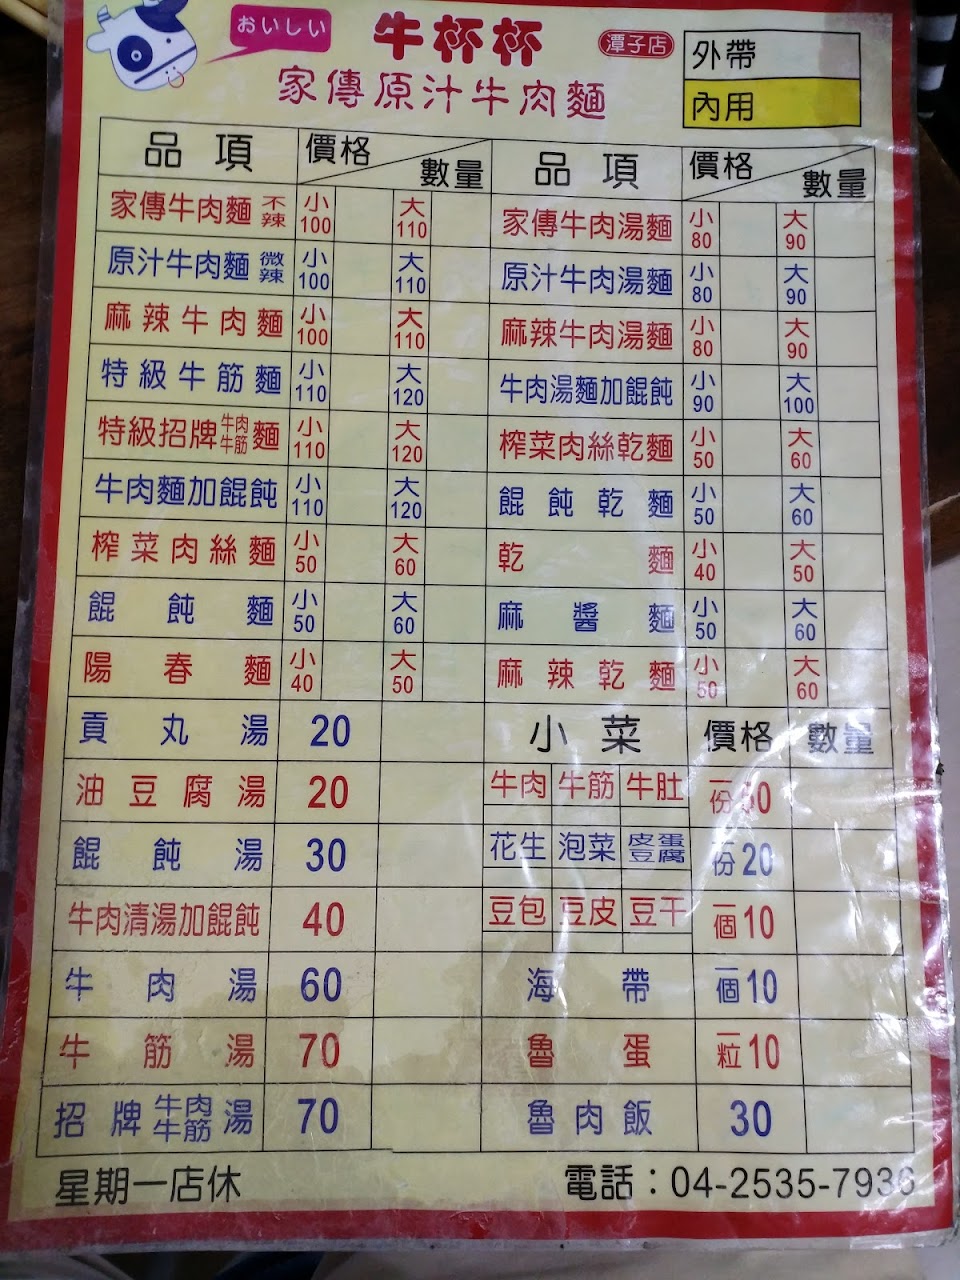 おいしい 牛杯杯 潭子店
家傳原汁牛肉麵
外帶
內用
品項 價格 數量 品項 價格 數量
家傳牛肉麵 不辣 小100 大110 家傳牛肉湯麵 小80 大90
原汁牛肉麵 微辣 小100 大110 原汁牛肉湯麵 小80 大90
麻辣牛肉麵 小100 大110 麻辣牛肉湯麵 小80 大90
特級牛筋麵 小110 大120 牛肉湯麵加餛飩 小90 大100
特級招牌牛肉牛筋麵 小110 大120 榨菜肉絲乾麵 小50 大60
牛肉麵加餛飩 小110 大120 餛飩乾麵 小50 大60
榨菜肉絲麵 小50 大60 乾麵 小40 大50
餛飩麵 小50 大60 麻醬麵 小50 大60
陽春麵 小40 大50 麻辣乾麵 小50 大60
貢丸湯 20 小菜 價格 數量
油豆腐湯 20 牛肉 牛筋 牛肚 一份
餛飩湯 30 花生 泡菜 皮蛋豆腐 一份20
牛肉清湯加餛飩 40 豆包 豆皮 豆干 一個10
牛肉湯 60 海帶 一個10
牛筋湯 70 魯蛋 一粒10
招牌牛肉牛筋湯 70 魯肉飯 30
星期一店休 電話：04-2535-7936